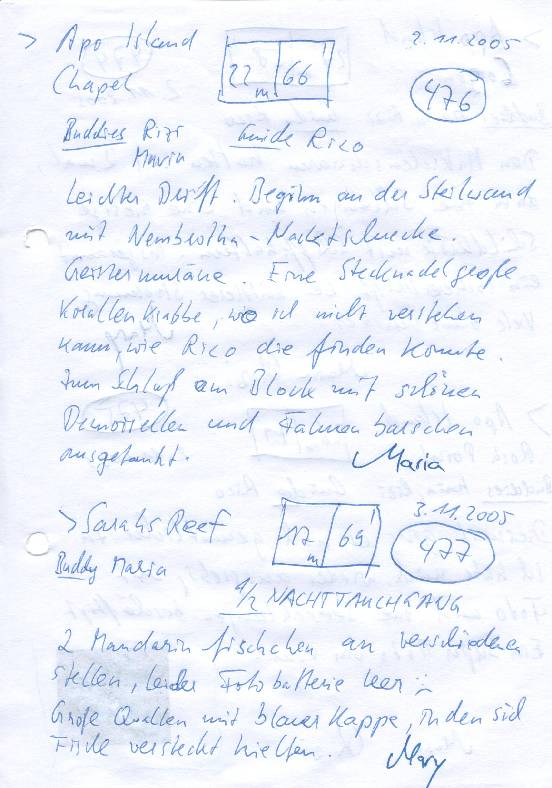 > Apo Island 22 m 66' 2.11.2005
Chapel 476
Buddies Rizi Guide Rico
Maria
Leichter Drift. Beginn an der Steilwand
mit Nembrotha-Nacktschnecke.
Geistermuräne. Eine Stecknadelgroße
Korallenkrabbe, wo ich nicht verstehen
kann, wie Rico die finden konnte.
Zum Schluß am Block mit schönen
Demoisellen und Fahnenbarschen
ausgetankt. Maria
> Sarahs Reef 17 m 69' 3.11.2005
Buddy Maria 477
1/2 NACHTTAUCHGANG
2 Mandarinfischchen an verschiedenen
Stellen, leider Fotobatterie leer
Große Quallen mit blauer Kappe, in den sich
Fische versteckt hielten. Mary